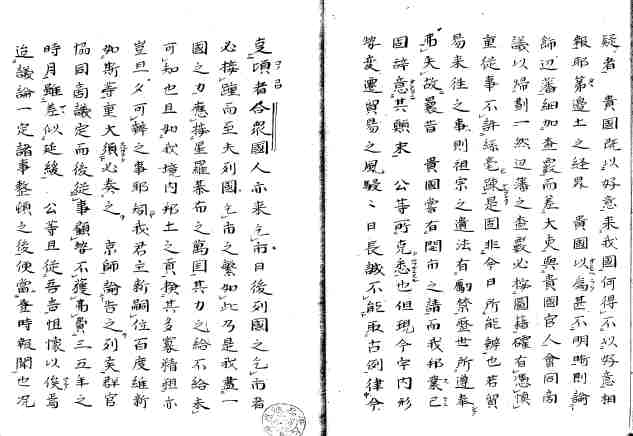 疑者 貴國既以好意来我國何得不以好意相
報耶第邊土之経界 貴國以為甚不明晰則論
飾辺藩細加查覈而差大吏與貴國官人會同商
議以帰劃一然辺藩之查覈必按圖籍確有憑懊
重従事不許絲毫疎是固非今日所能辨也若貿
易来往之事則祖宗之遺法有勵禁歴世所遵奉
弗失故曩旨 貴國嘗有開市之請而我邦業已
固辞意其願末 公等所克悉也但現今宇内形
勢変遷貿易之風駸々日長誠不能取古例律今
亶頃者合衆國人亦来乞市日後列國之乞市者
必接踵而至夫列國乞市之繁如此乃是我盡一
國之力應接星羅棊布之萬国其力之給不給未
可知也且如我境内邦土之貢揆其多寡精粗亦
豈旦夕可辨之事耶矧我君主新嗣位百度維新
如斯等重大須必奏之 京師諭告之列矦群官
協同商議定而後従事顧勢不獲不費三五年之
時月雖差似延緩 公等且従吾意怛懷以俟焉
迨議論一定諸事整頓之後便當登時報聞也况